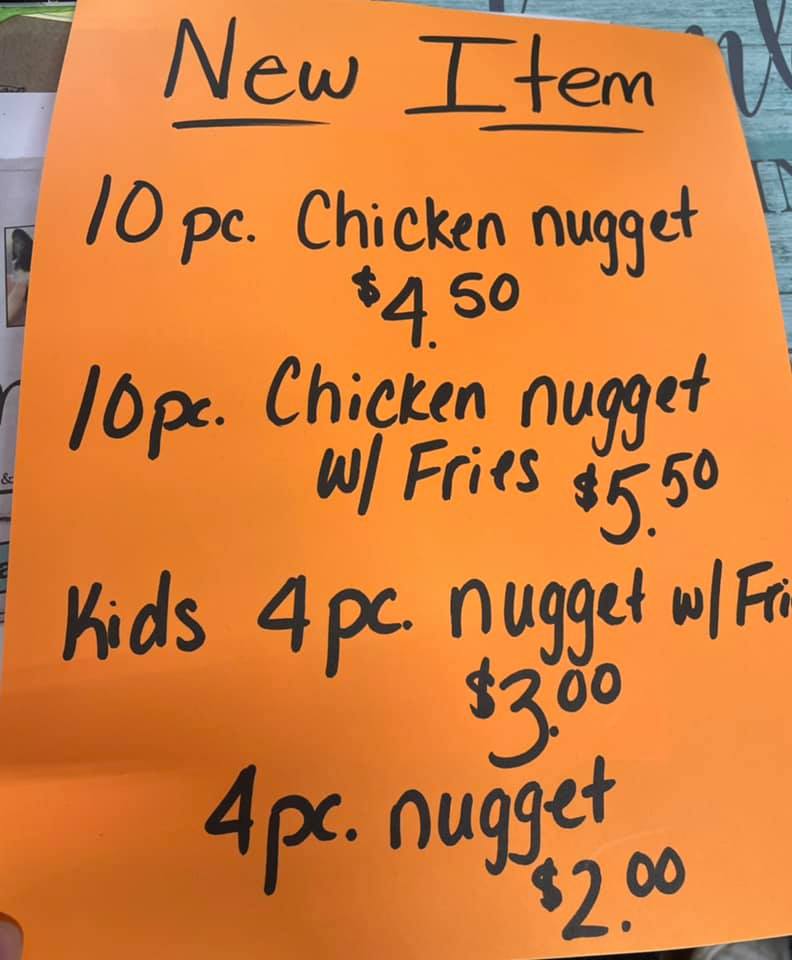 New Item
10 pc. Chicken nugget
$4.50
10 pc. Chicken nugget
w/ Fries $5.50
Kids 4 pc. nugget w/ Fri
$3.00
4 pc. nugget
$2.00
&